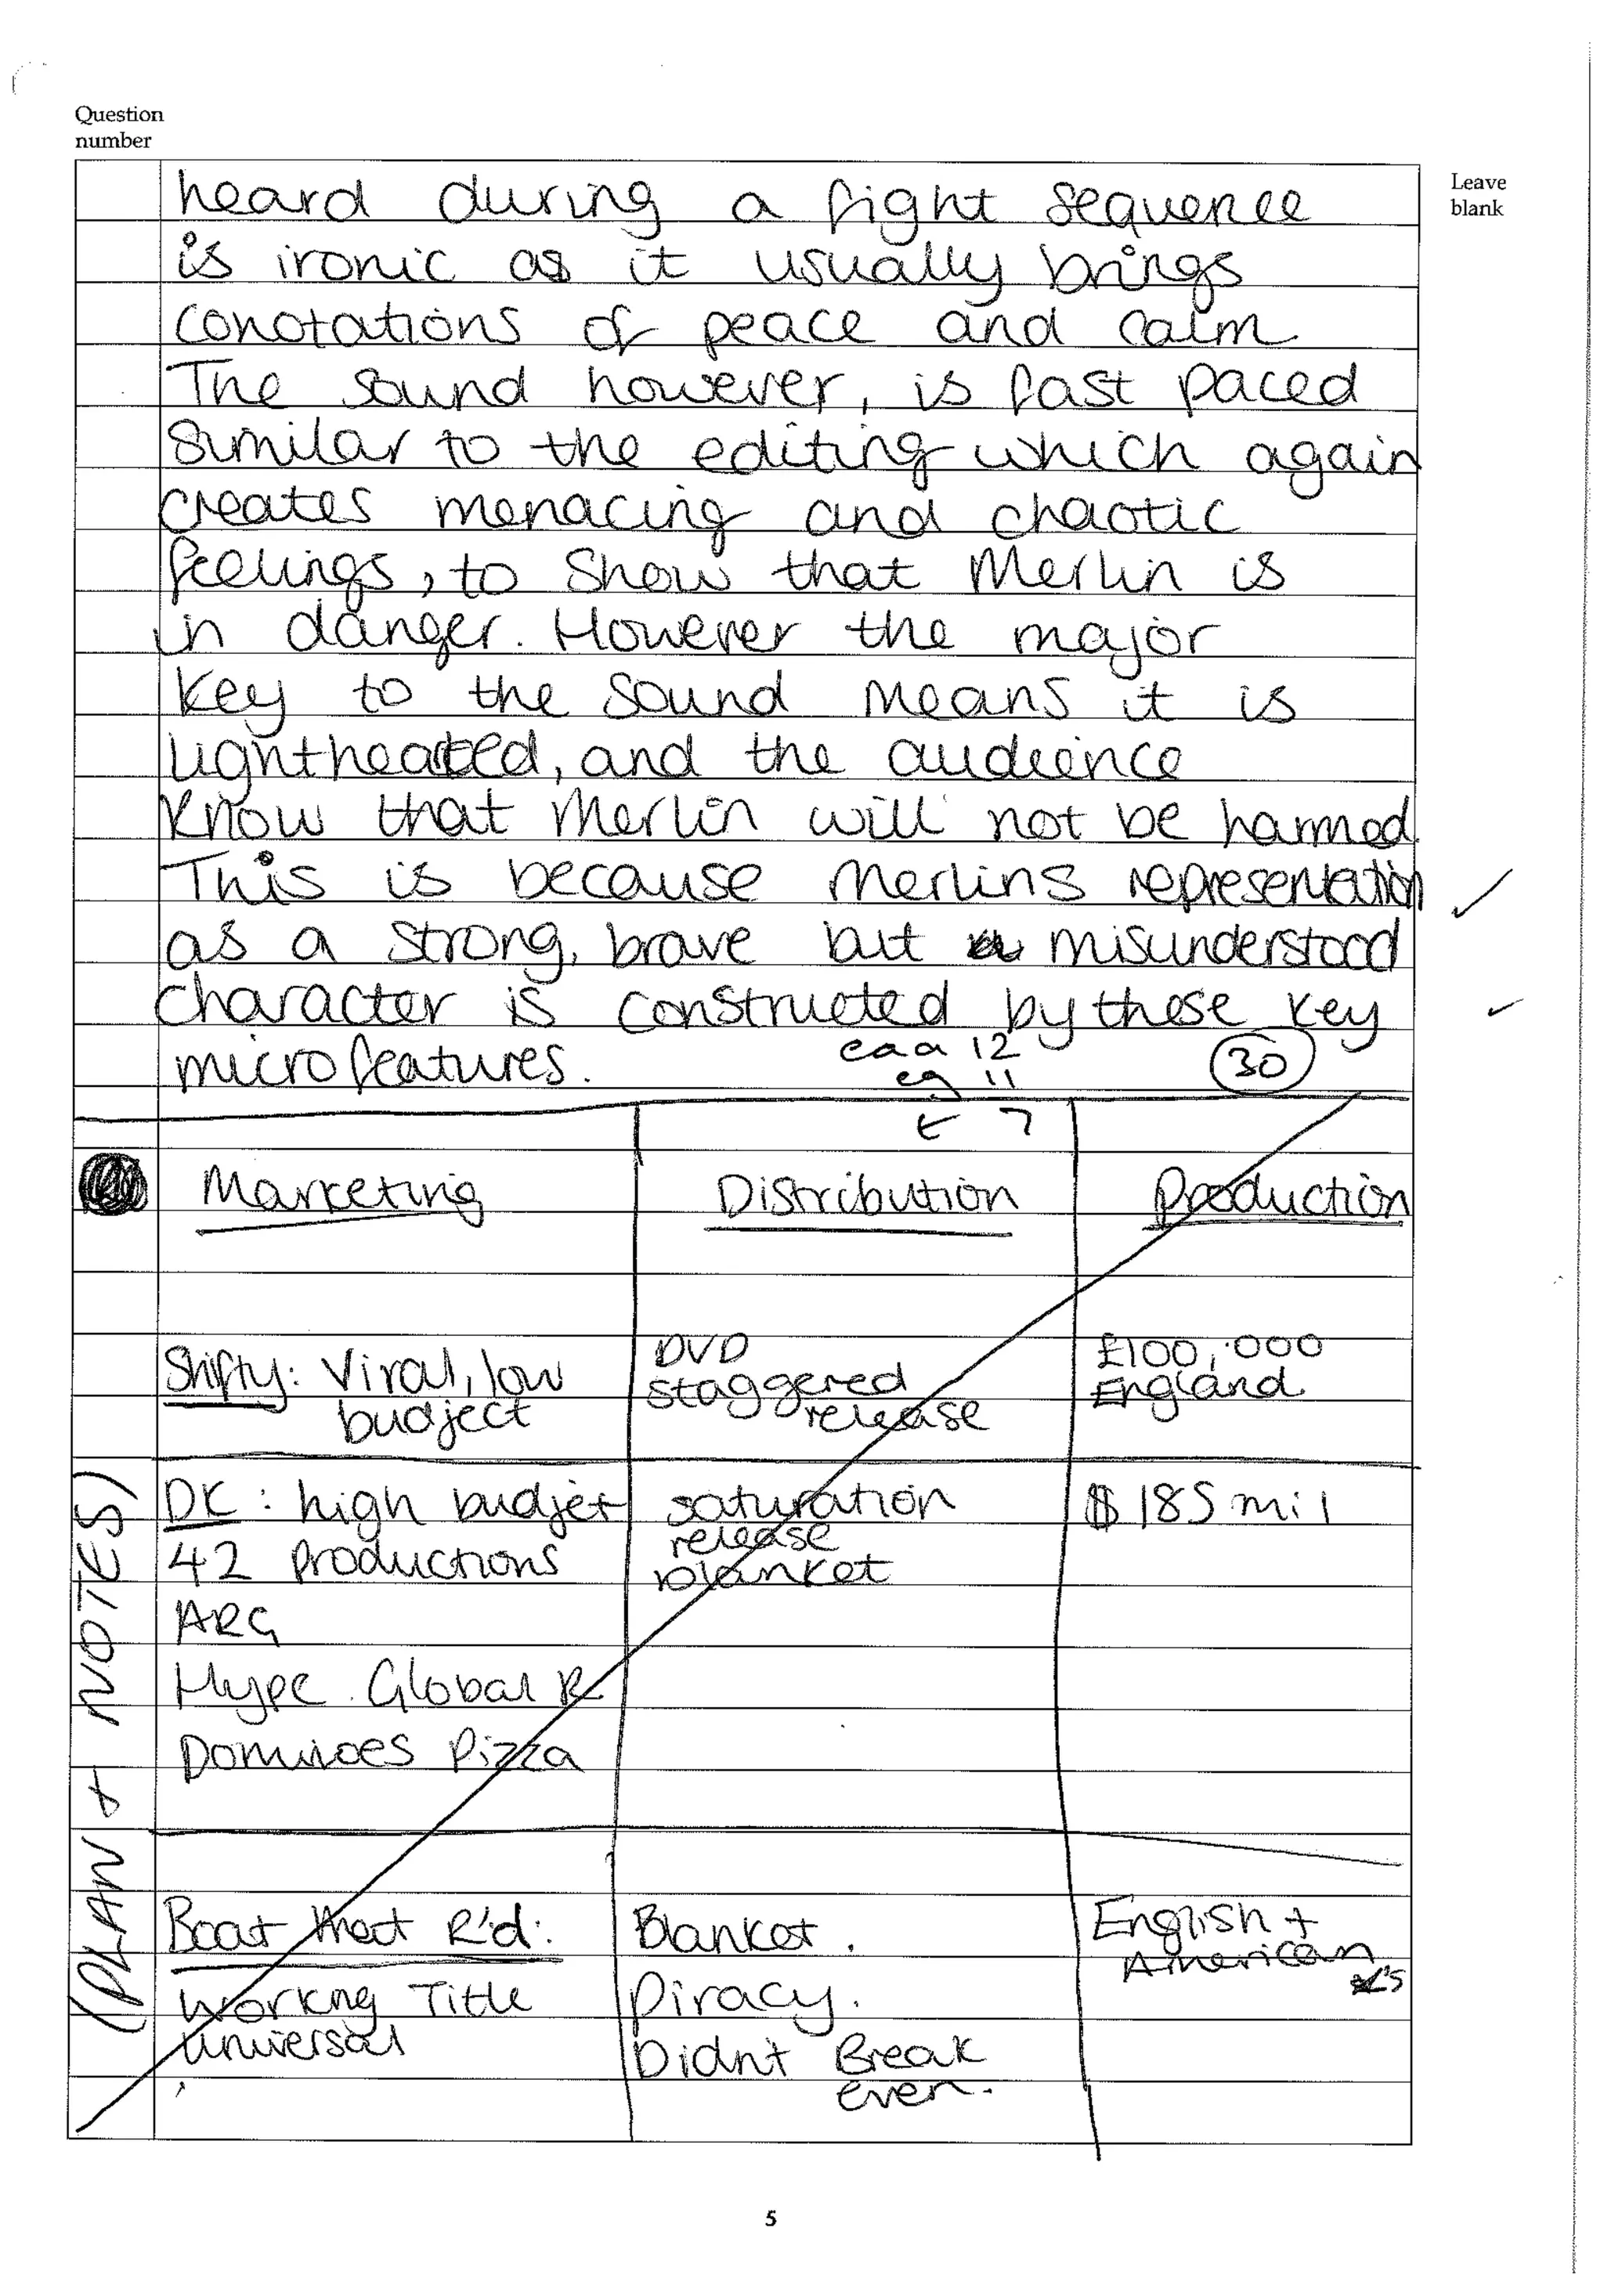 Question
number
Leave
blank
heard during a fight sequence
is ironic as it usually brings
conotations of peace and calm.
The sound however, is fast paced
similar to the editing which again
creates menacing and chaotic
feelings, to show that Merlin is
in danger. However the major
key to the sound means it is
lighthearted, and the audience
know that Merlin will not be harmed.
This is because Merlins representation
as a strong, brave but misunderstood
character is constructed by these key
microfeatures.
eaa 12
eg 11
t 7
30
Marketing Distribution Production
Shifty: Viral, low budject
DVD
staggered release
£100,000
England
(PLAN + NOTES)
DK: high budjet
42 Productions
ARG
Hype. Global R
Dominoes Pizza
saturation
release
blanket
$185 mil
Boat that R'd:
Working Title
Universal
Blanket.
Piracy.
Didnt Break
even.
English +
American
5